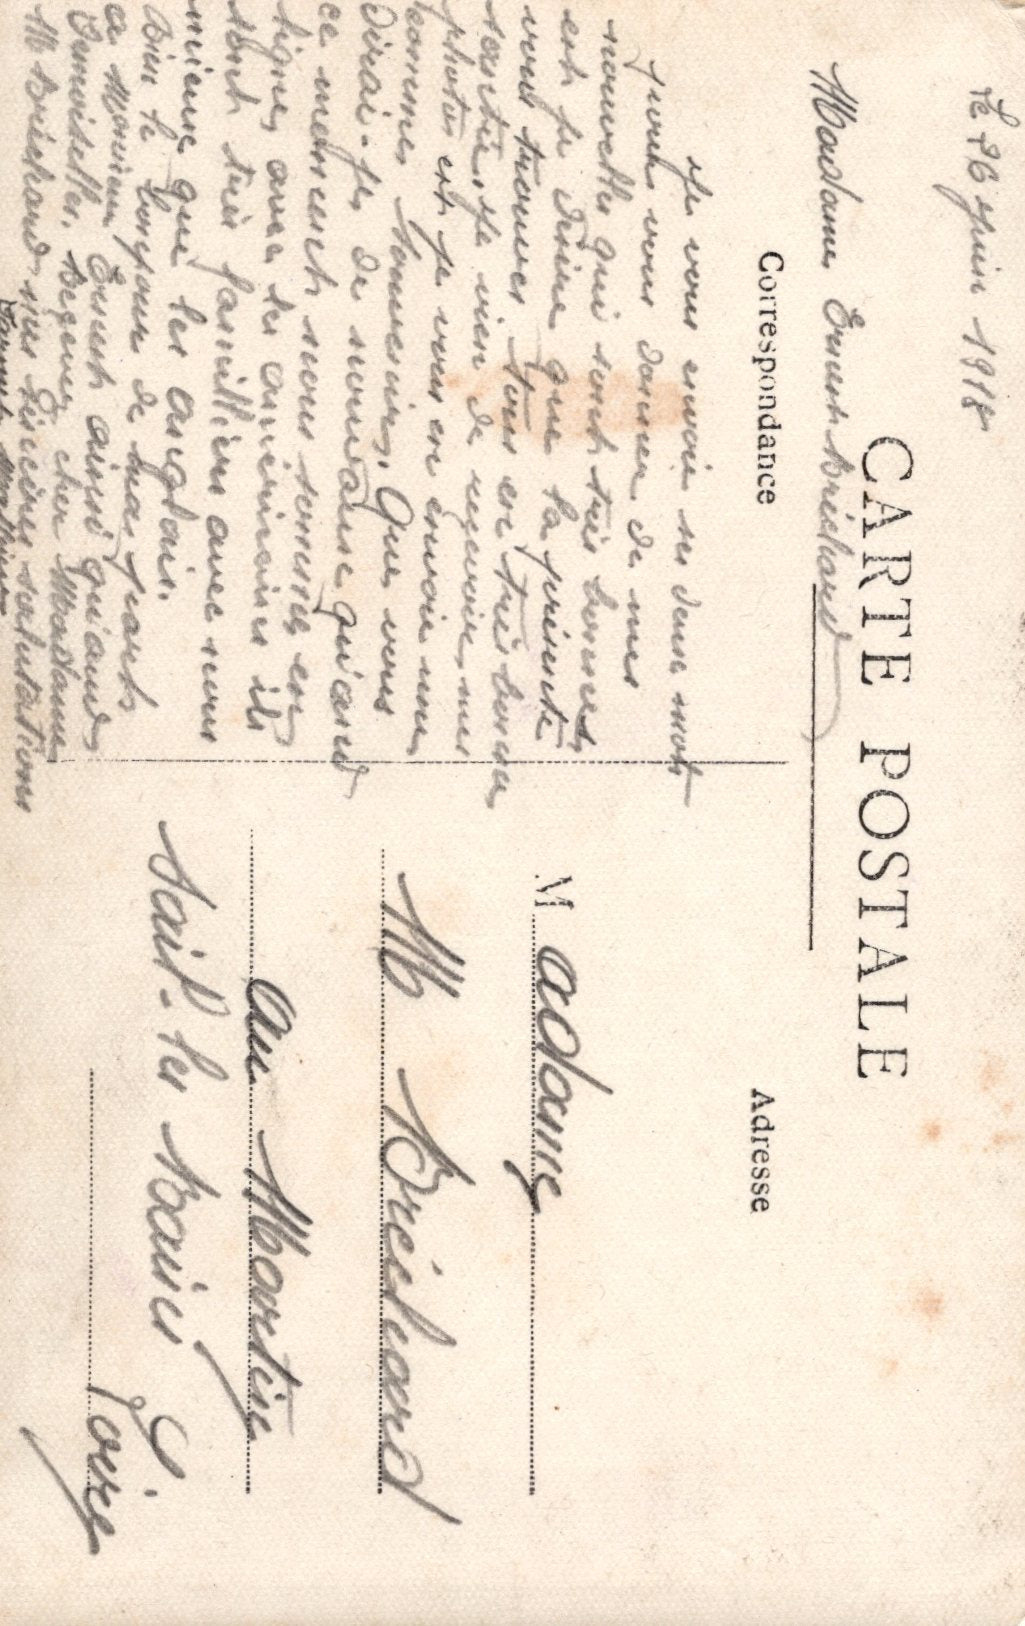 Le 26 Juin 1918
CARTE POSTALE
Madame Ernest Bréchard
Correspondance
Adresse
Je vous envoie ses deux mots
pour vous donner de mes
nouvelles qui sont très bonnes,
est je désire que la présente
vous trouves tous en très bonne
santée, je vien de recevoir mes
photos est je vous en envoie une
comme souvenir. Que vous
dirai-je de nouveaux qu'and
ce moment nous sommes en
ligne avec les américains ils
sont très famillien avec nous
mieux que les anglais.
Bien le bonjour de ma part
a Monsieur Ernest ainssi qu'aux
Demoiselles. Recevez cher Madame
M Bréchard mes sincères salutations
M adame
M Bréchard
au Martin
Sail-les Bains
Loire